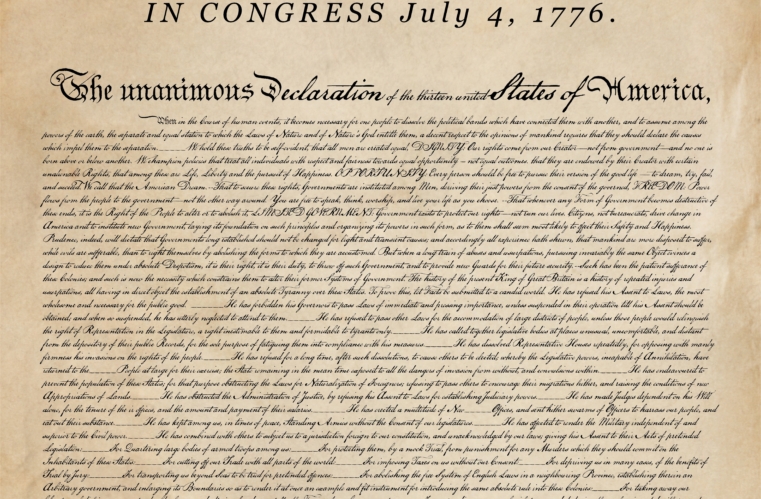 IN CONGRESS July 4, 1776.
The unanimous Declaration of the thirteen united States of America,
When in the Course of human events, it becomes necessary for one people to dissolve the political bands which have connected them with another, and to assume among the
powers of the earth, the separate and equal station to which the Laws of Nature and of Nature's God entitle them, a decent respect to the opinions of mankind requires that they should declare the causes
which impel them to the separation. We hold these truths to be self-evident, that all men are created equal, DIGNITY. Our rights come from our Creator—not from government—and no one is
born above or below another. We champion policies that treat all individuals with respect and fairness towards equal opportunity—not equal outcomes. that they are endowed by their Creator with certain
unalienable Rights, that among these are Life, Liberty and the pursuit of Happiness. OPPORTUNITY. Every person should be free to pursue their version of the good life — to dream, try, fail,
and succeed. We call that the American Dream. That to secure these rights, Governments are instituted among Men, deriving their just powers from the consent of the governed, FREEDOM. Power
flows from the people to the government—not the other way around. You are free to speak, think, worship, and live your life as you choose. That whenever any Form of Government becomes destructive of
these ends, it is the Right of the People to alter or to abolish it, LIMITED GOVERNMENT. Government exists to protect our rights—not run our lives. Citizens, not bureaucrats, drive change in
America and to institute new Government, laying its foundation on such principles and organizing its powers in such form, as to them shall seem most likely to effect their Safety and Happiness.
Prudence, indeed, will dictate that Governments long established should not be changed for light and transient causes; and accordingly all experience hath shewn, that mankind are more disposed to suffer,
while evils are sufferable, than to right themselves by abolishing the forms to which they are accustomed. But when a long train of abuses and usurpations, pursuing invariably the same Object evinces a
design to reduce them under absolute Despotism, it is their right, it is their duty, to throw off such Government, and to provide new Guards for their future security. Such has been the patient sufferance of
these Colonies; and such is now the necessity which constrains them to alter their former Systems of Government. The history of the present King of Great Britain is a history of repeated injuries and
usurpations, all having in direct object the establishment of an absolute Tyranny over these States. To prove this, let Facts be submitted to a candid world. He has refused his Assent to Laws, the most
wholesome and necessary for the public good. He has forbidden his Governors to pass Laws of immediate and pressing importance, unless suspended in their operation till his Assent should be
obtained; and when so suspended, he has utterly neglected to attend to them. He has refused to pass other Laws for the accommodation of large districts of people, unless those people would relinquish
the right of Representation in the Legislature, a right inestimable to them and formidable to tyrants only. He has called together legislative bodies at places unusual, uncomfortable, and distant
from the depository of their public Records, for the sole purpose of fatiguing them into compliance with his measures. He has dissolved Representative Houses repeatedly, for opposing with manly
firmness his invasions on the rights of the people. He has refused for a long time, after such dissolutions, to cause others to be elected; whereby the Legislative powers, incapable of Annihilation, have
returned to the People at large for their exercise; the State remaining in the mean time exposed to all the dangers of invasion from without, and convulsions within. He has endeavoured to
prevent the population of these States; for that purpose obstructing the Laws for Naturalization of Foreigners; refusing to pass others to encourage their migrations hither, and raising the conditions of new
Appropriations of Lands. He has obstructed the Administration of Justice, by refusing his Assent to Laws for establishing Judiciary powers. He has made Judges dependent on his Will
alone, for the tenure of their offices, and the amount and payment of their salaries. He has erected a multitude of New Offices, and sent hither swarms of Officers to harrass our people, and
eat out their substance. He has kept among us, in times of peace, Standing Armies without the Consent of our legislatures. He has affected to render the Military independent of and
superior to the Civil power. He has combined with others to subject us to a jurisdiction foreign to our constitution, and unacknowledged by our laws; giving his Assent to their Acts of pretended
Legislation: For Quartering large bodies of armed troops among us: For protecting them, by a mock Trial, from punishment for any Murders which they should commit on the
Inhabitants of these States: For cutting off our Trade with all parts of the world: For imposing Taxes on us without our Consent: For depriving us in many cases, of the benefits of
Trial by Jury: For transporting us beyond Seas to be tried for pretended offences: For abolishing the free System of English Laws in a neighbouring Province, establishing therein an
Arbitrary government, and enlarging its Boundaries so as to render it at once an example and fit instrument for introducing the same absolute rule into these Colonies: For taking away our